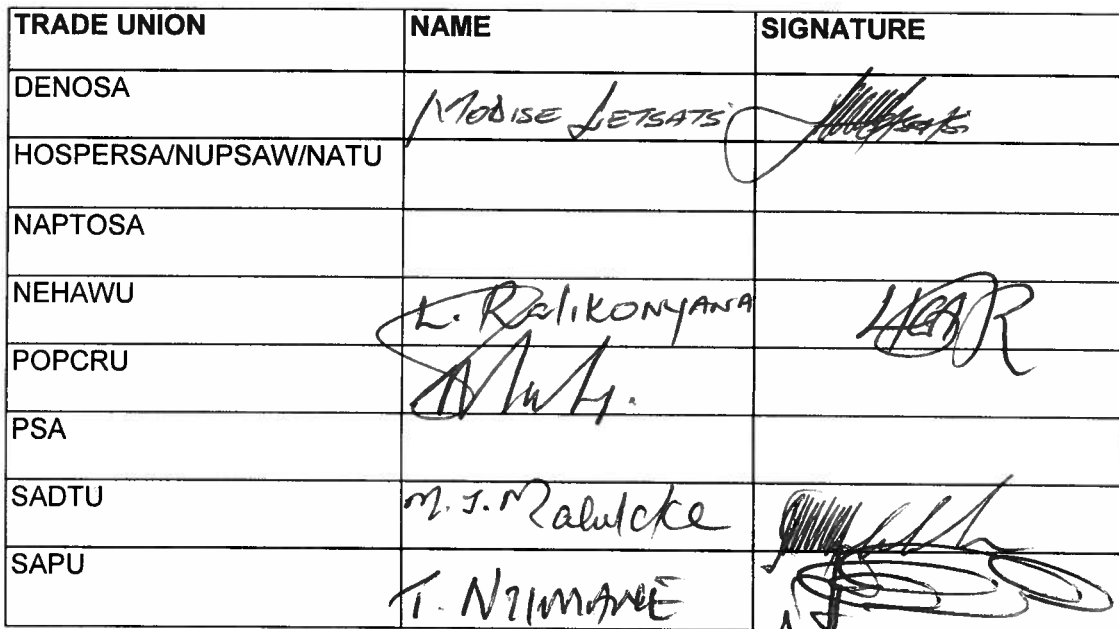 TRADE UNION NAME SIGNATURE
DENOSA MODISE LETSATSI
HOSPERSA/NUPSAW/NATU
NAPTOSA
NEHAWU L. Ralikonyana
POPCRU
PSA
SADTU M.J. Maluleke
SAPU T. NZIMANE